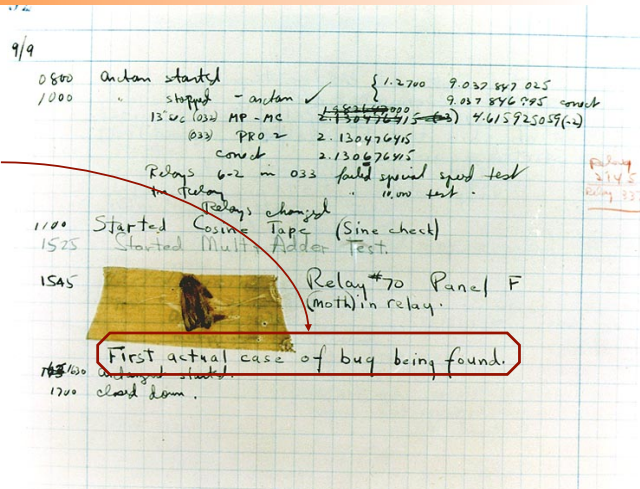 9/9
0800 Antan started { 1.2700 9.037 847 025
1000 " stopped - antan ✓ 9.037 846 995 correct
13"uc (032) MP - MC 2.130476415 (-3) 4.615925059(-2)
(033) PRO 2 2.130476415
correct 2.130676415
Relays 6-2 in 033 failed special speed test
in Relay " 10.000 test .
Relays changed
1100 Started Cosine Tape (Sine check)
1525 Started Mult + Adder Test.
1545 Relay #70 Panel F
(moth) in relay.
First actual case of bug being found.
1630 antangent started.
1700 closed down.
Relay
2145
Relay 337